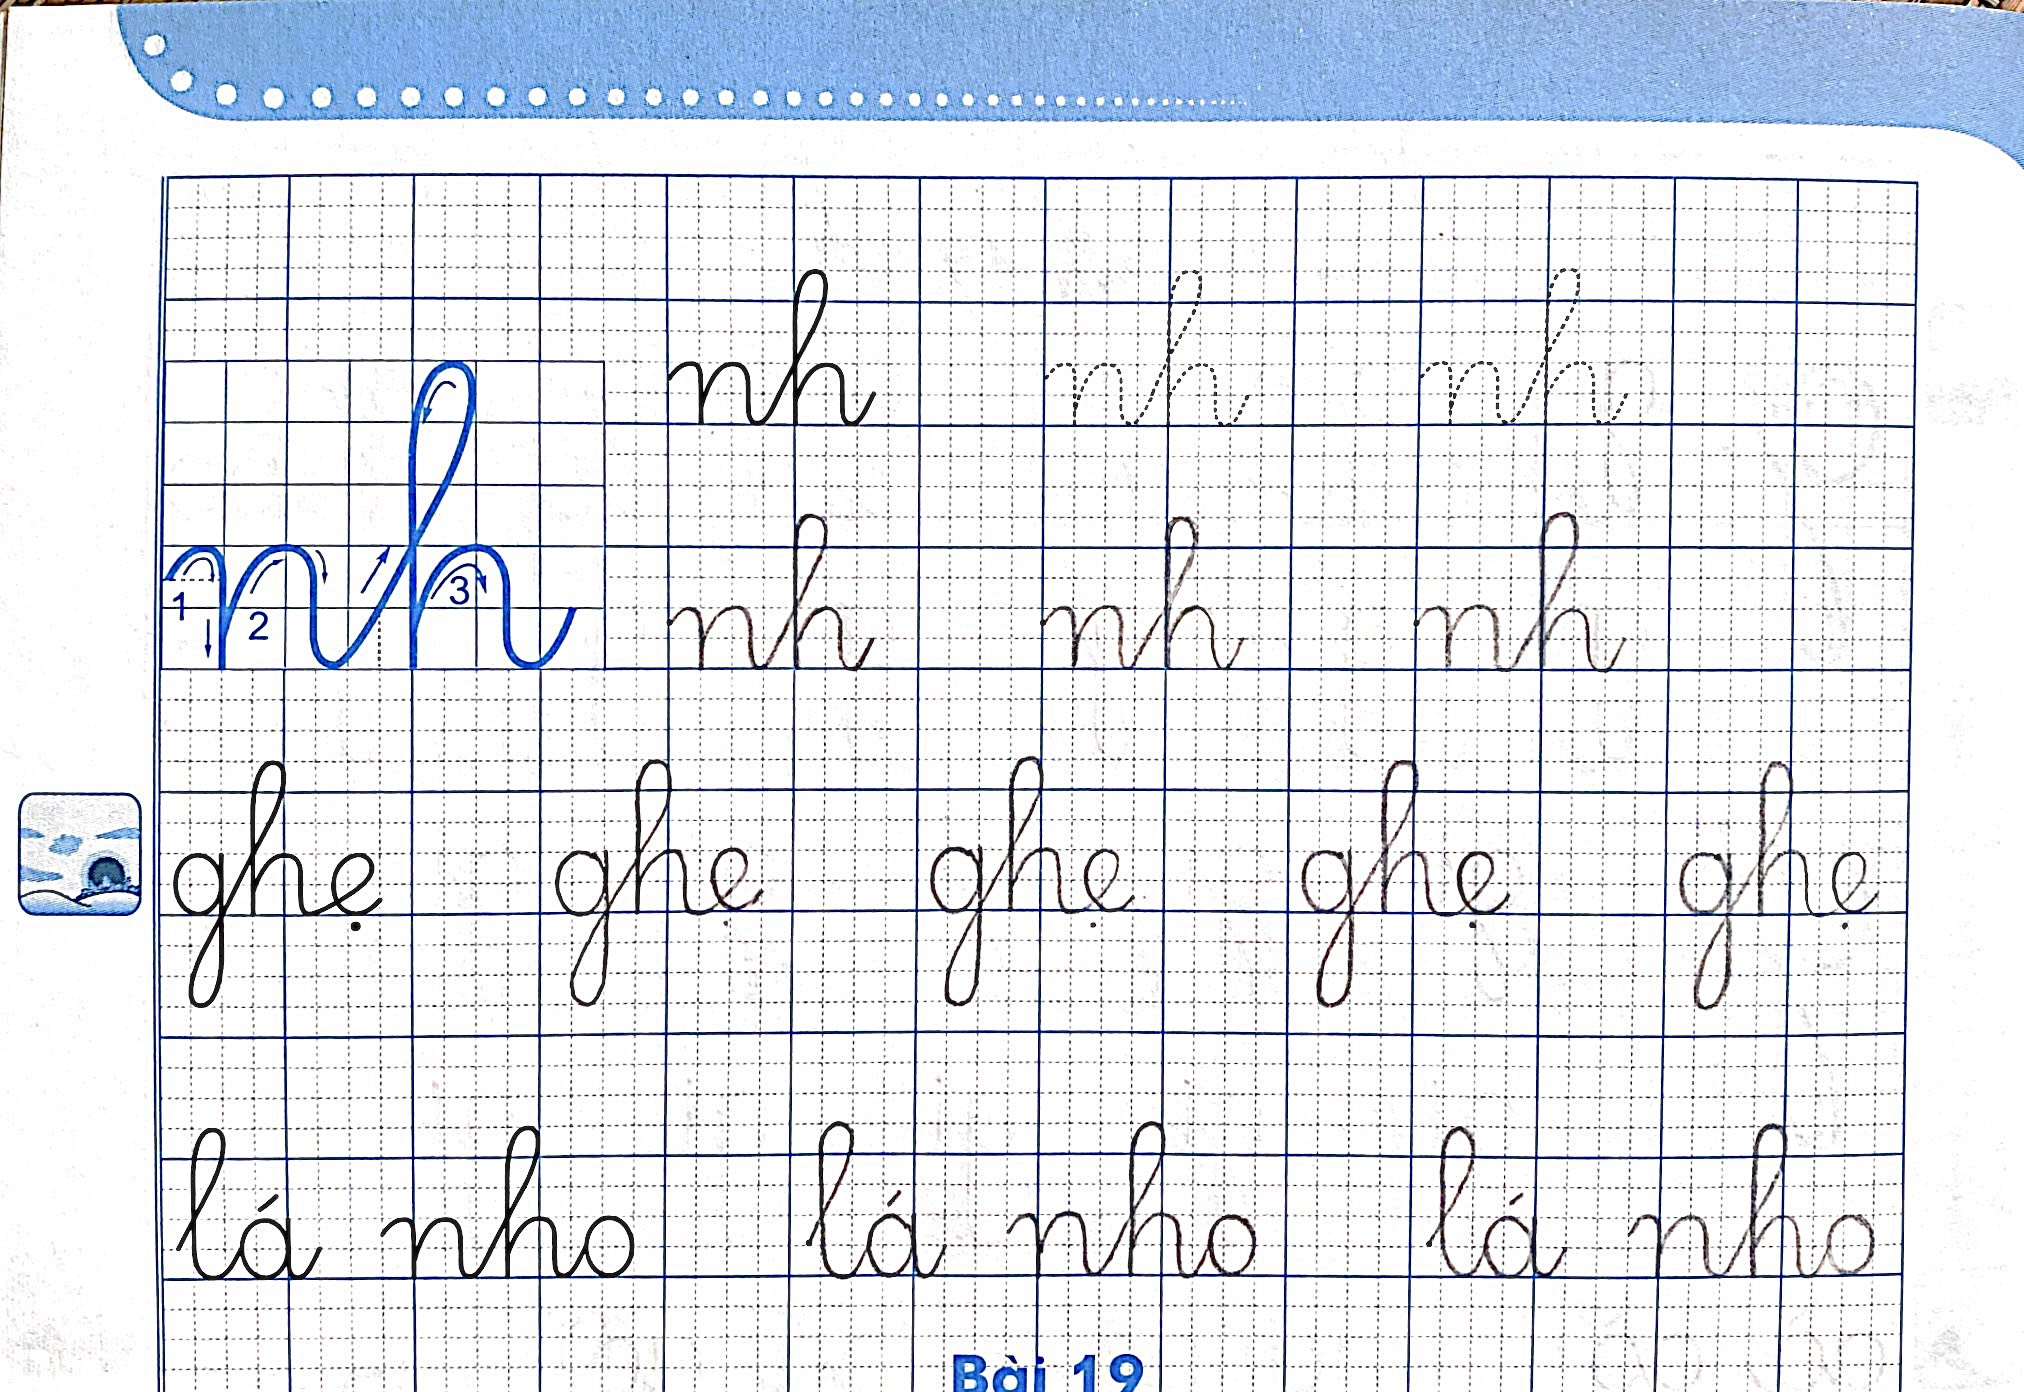 nh nh nh
1 2 3 nh nh nh nh
ghẹ ghẹ ghẹ ghẹ ghẹ
lá nho lá nho lá nho
Bài 19